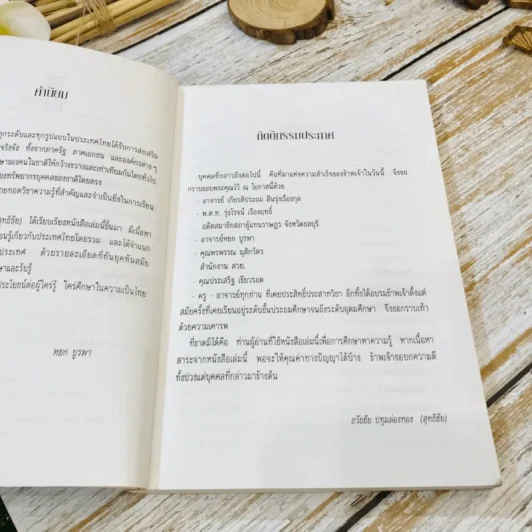 คำนิยม
ทุกระดับและทุกรูปแบบในประเทศไทยได้รับการส่งเสริม
จริงจัง ทั้งจากภาครัฐ ภาคเอกชน และองค์กรต่าง ๆ
ของคนในชาติให้กว้างขวางและเท่าเทียมกันโดยทั่วไป
ทรัพยากรบุคคลของชาติโดยตรง
ทอดวิชาความรู้ที่สำคัญและจำเป็นยิ่งในการเรียน
(สุทธิชัย) ได้เรียบเรียงหนังสือเล่มนี้ขึ้นมา มีเนื้อหา
รู้เกี่ยวกับประเทศไทยโดยรวม และได้จำแนก
ประเทศ ด้วยรายละเอียดที่ทันยุคทันสมัย
และรับรู้
ประโยชน์ต่อผู้ใคร่รู้ ใคร่ศึกษาในความเป็นไทย
หยก บูรพา
กิตติกรรมประกาศ
บุคคลที่กล่าวถึงต่อไปนี้ คือที่มาแห่งความสำเร็จของข้าพเจ้าในวันนี้ จึงขอ
กราบขอบพระคุณไว้ ณ โอกาสนี้ด้วย
- อาจารย์ เกียรติประถม สินรุ่งเรืองกุล
- พ.ต.ท. รุ่งโรจน์ เรืองฤทธิ์
อดีตสมาชิกสภาผู้แทนราษฎร จังหวัดชลบุรี
- อาจารย์หยก บูรพา
- คุณพรพรรณ มุสิกวัตร
สำนักงาน สวย.
- คุณประเสริฐ เขียวรอด
- ครู - อาจารย์ทุกท่าน ที่เคยประสิทธิ์ประสาทวิชา อีกทั้งได้อบรมข้าพเจ้าตั้งแต่
สมัยครั้งที่เคยเรียนอยู่ระดับชั้นประถมศึกษาจนถึงระดับอุดมศึกษา จึงขอกราบเท้า
ด้วยความเคารพ
ที่ขาดมิได้คือ ท่านผู้อ่านที่ใช้หนังสือเล่มนี้เพื่อการศึกษาหาความรู้ หากเนื้อหา
สาระจากหนังสือเล่มนี้ พอจะให้คุณค่าทางปัญญาได้บ้าง ข้าพเจ้าขอยกความดี
ทั้งปวงแด่บุคคลที่กล่าวมาข้างต้น
ธวัชชัย ปทุมล่องทอง (สุทธิชัย)